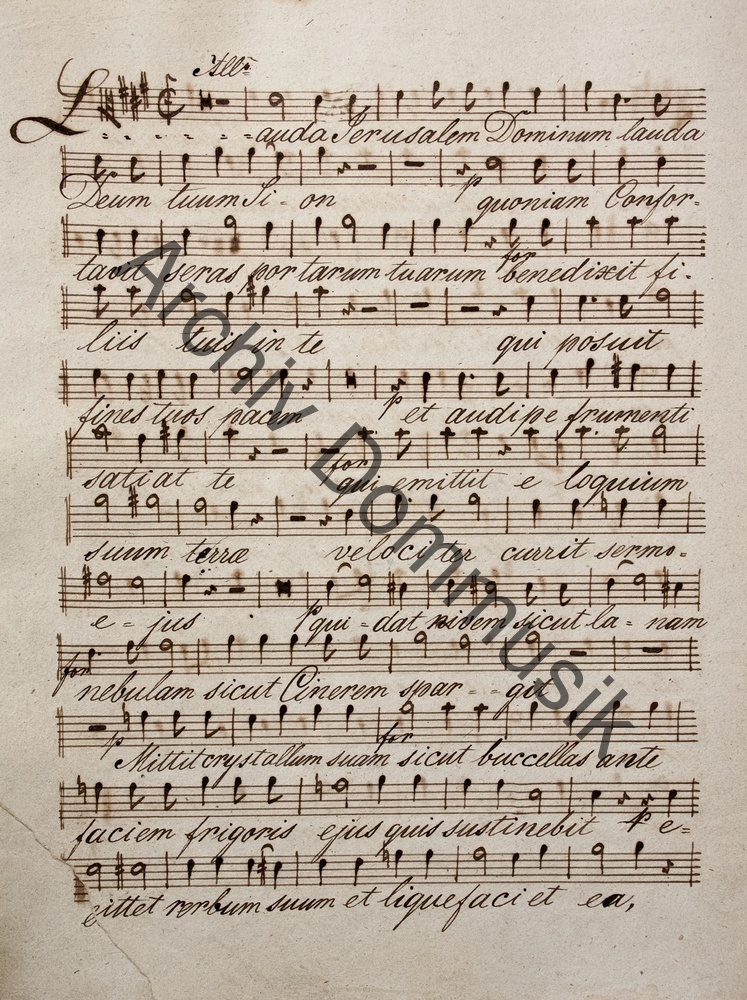 All:o
Lauda Jerusalem Dominum lauda
Deum tuum Si - on p quoniam Confor=
tavit seras portarum tuarum for benedixit fi-
liis tuis in te qui posuit
fines tuos pacem p et audipe frumenti
satiat te for qui emittit e loquium
suum terræ velociter currit sermo=
e = jus p qui - dat nivem sicut la = nam
for nebulam sicut Cinerem spar - - git
p Mittit crystallum suam for sicut buccellas ante
faciem frigoris ejus quis sustinebit p e=
mittet verbum suum et liquefaciet ea,
Archiv Dommusik